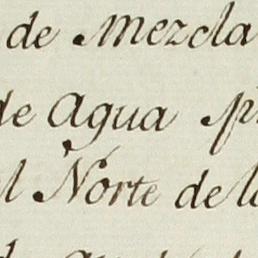 de Mezcla
de Agua
Norte de